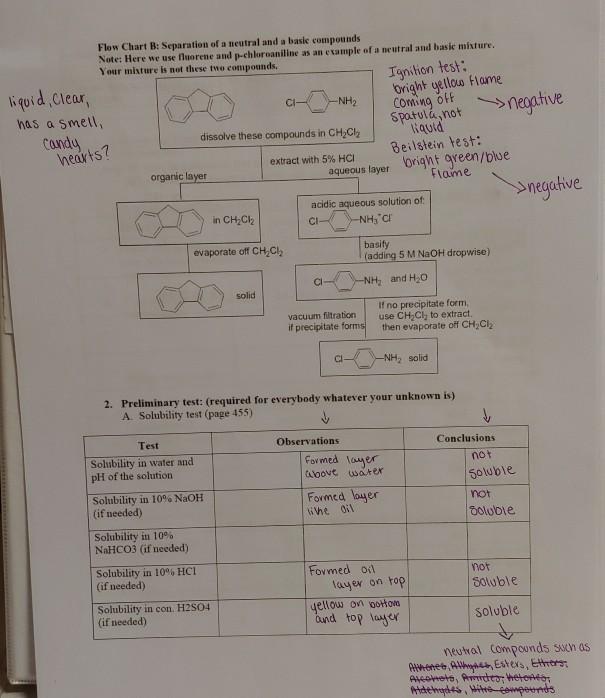 Flow Chart B: Separation of a neutral and a basic compounds
Note: Here we use fluorene and p-chloroaniline as an example of a neutral and basic mixture.
Your mixture is not these two compounds.
liquid, clear,
has a smell,
candy
hearts?
Ignition test:
bright yellow flame
coming off
spatula, not
liquid
negative
Beilstein test:
bright green/blue
flame
negative
Cl NH2
dissolve these compounds in CH2Cl2
extract with 5% HCl
organic layer
aqueous layer
in CH2Cl2
acidic aqueous solution of:
Cl NH3+Cl-
evaporate off CH2Cl2
basify
(adding 5 M NaOH dropwise)
solid
Cl NH2 and H2O
vacuum filtration
if precipitate forms
If no precipitate form,
use CH2Cl2 to extract.
then evaporate off CH2Cl2
Cl NH2 solid
2. Preliminary test: (required for everybody whatever your unknown is)
A. Solubility test (page 455)
Test Observations Conclusions
Solubility in water and
pH of the solution
Formed layer
above water
not
soluble
Solubility in 10% NaOH
(if needed)
Formed layer
like oil
not
soluble
Solubility in 10%
NaHCO3 (if needed)
Solubility in 10% HCl
(if needed)
Formed oil
layer on top
not
soluble
Solubility in con. H2SO4
(if needed)
yellow on bottom
and top layer
soluble
neutral compounds such as
Alkenes, Alkynes, Esters, Ethers,
Alcohols, Amides, Ketones,
Aldehydes, Nitro compounds